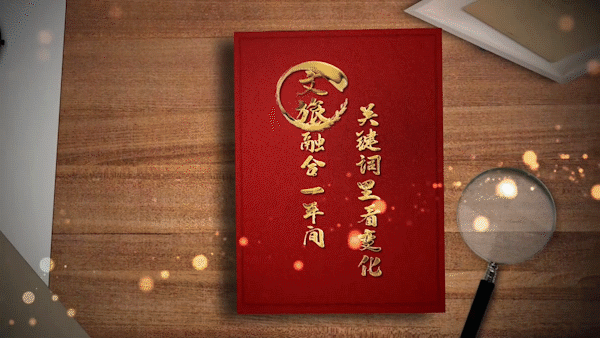 文旅融合一年间
关键词里看变化